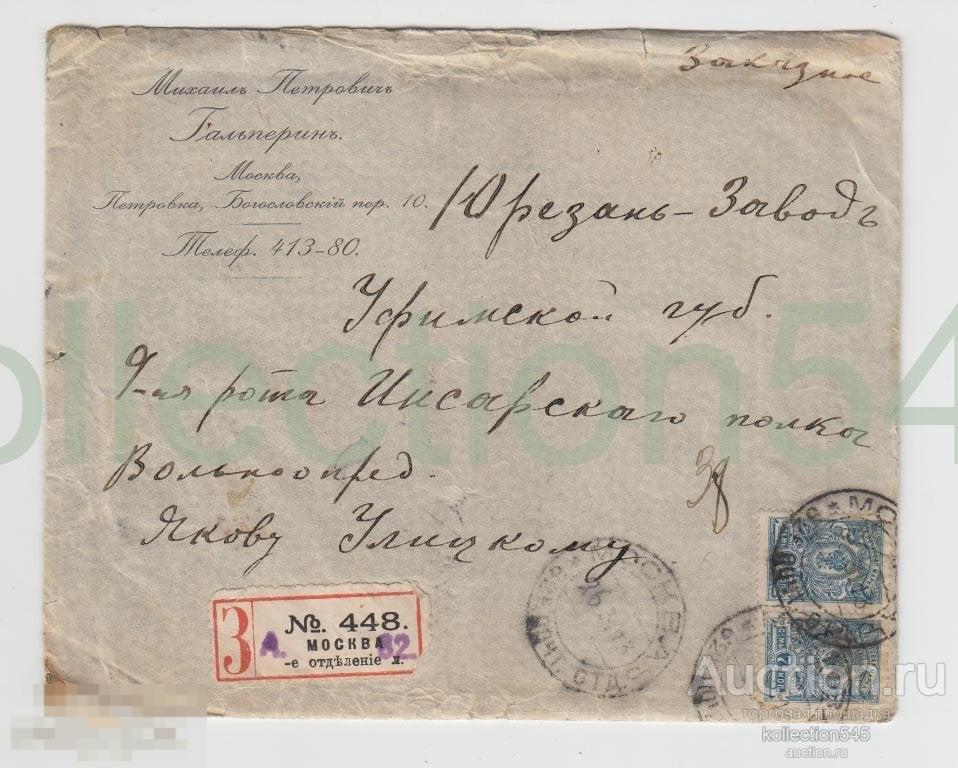 Заказное
Михаилъ Петровичъ
Гальперинъ.
Москва,
Петровка, Богословскій пер. 10.
Телеф. 413-80.
Юрезань-Заводъ
Уфимской губ.
9-ая рота Инсарскаго полка
Вольноопред.
Якову Улицкому
З
№. 448.
МОСКВА
А. 32
-е отдѣленіе
МОСКВА
collection54
Auction.ru
торговая площадка
kollection545
auction.ru